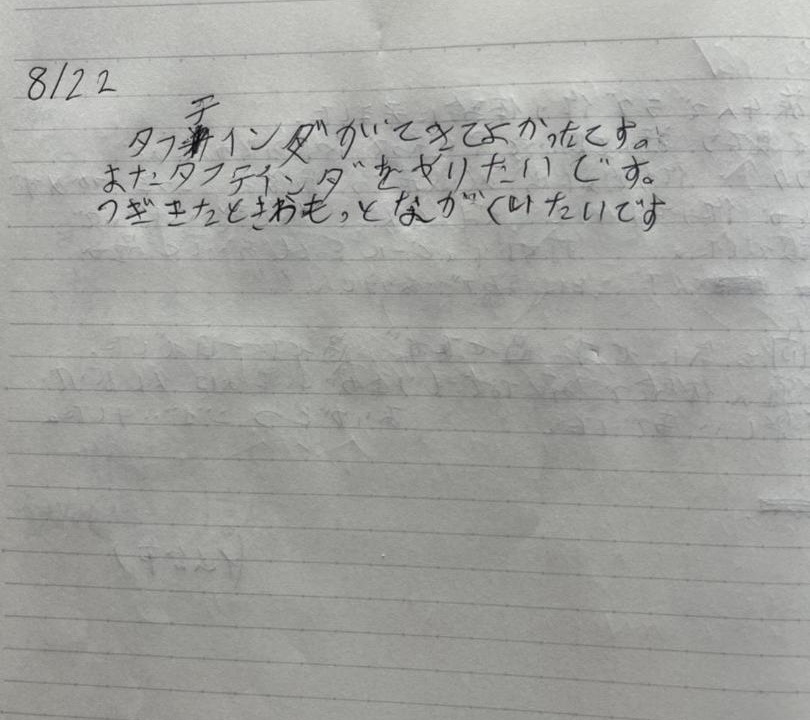 8/22
タフティンダがてきてよかったてす。
またタフテインダをやりたいです。
つぎきたときわもっとながくいたいです